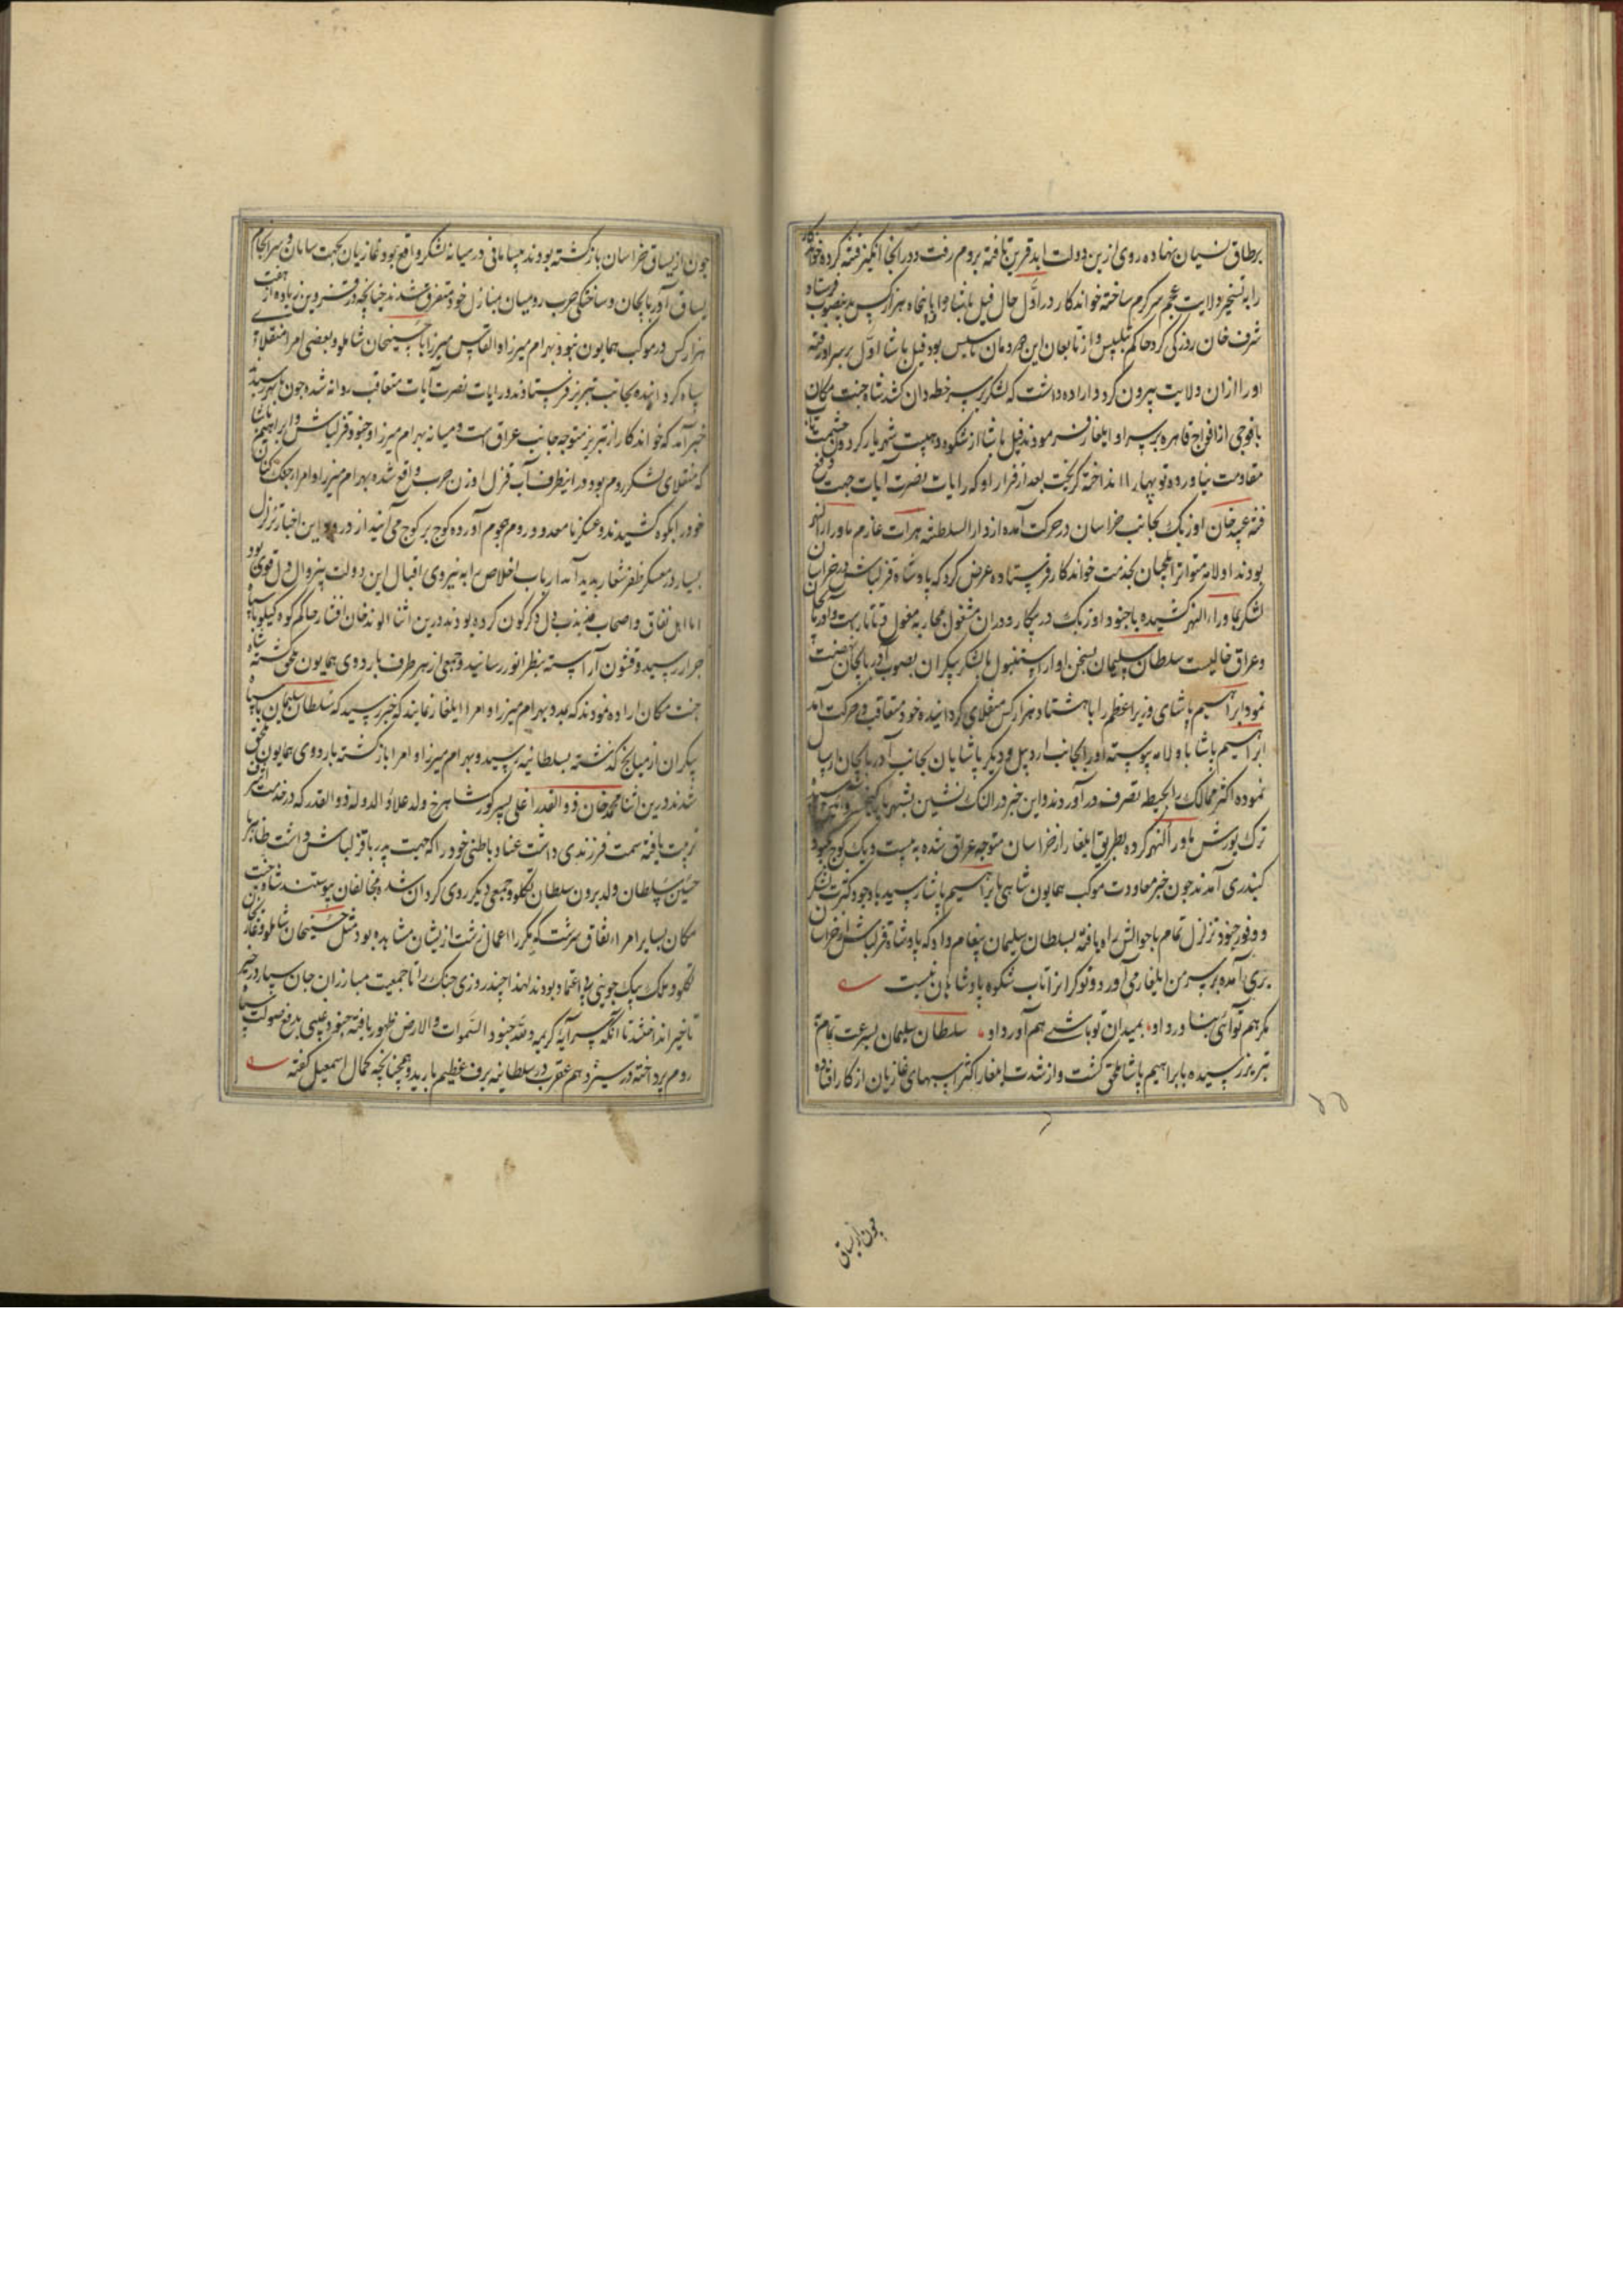 برطاق نسیان نهاده روی ازین دولت ابد قرین تافته بروم رفت و در انجا انگیز فتنه کرده خواندکار
را به تسخیر ولایت عجم سرگرم ساخته خواندکار در اول حال فیل پاشا را با پنجاه هزار کس بدینصوب فرستاد
شرف خان روزکی کرد حاکم بتلیس و از تابعان این دودمان بود فیل پاشا اول بر سر او رفته
او را ازان ولایت بیرون کرد و اراده داشت که لشکر بر سر خطه وان کشد شاه جنت مکان
با فوجی از افواج قاهره بر سر او ایلغار فرمودند فیل پاشا از شکوه و هیبت شهریار گردون حشمت تاب
مقاومت نیاورده توپها را انداخته گریخت بعد از فرار او که رایات نصرت آیات جهت دفع
فتنه عبید خان اوزبک بجانب خراسان در حرکت آمده از دار السلطنه هرات عازم ماوراء النهر
بودند اولامه متواتر ایلچیان بخدمت خواندکار فرستاده عرض کرد که پادشاه قزلباش در خراسان
لشکر بماوراء النهر کشیده با جنود اوزبک در پیکار و دران مشغول محاربه مغول و تاتارست و آذربایجان
و عراق خالیست سلطان سلیمان بسخن او از استنبول با لشکر بیکران بصوب آذربایجان نهضت
نمود ابراهیم پاشای وزیر اعظم را با هشتاد هزار کس منقلای گردانیده خود متعاقب در حرکت آمد
ابراهیم پاشا باولامه پیوسته او را بجانب اردبیل و دیگر پاشایان بجانب آذربایجان ارسال
نموده اکثر ممالک را بحیطه تصرف در آوردند و این خبر در النک نشین
ترک یورش ماوراء النهر کرده بطریق ایلغار از خراسان متوجه عراق شده به بیست و یک کوچ بکبود
کنبد ری آمدند چون خبر معاودت موکب همایون شاهی بابراهیم پاشا رسید با وجود کثرت لشکر
و وفور جنود تزلزل تمام باحوالش راه یافته بسلطان سلیمان پیغام داد که پادشاه قزلباش از خراسان
بری آمده بر سر من ایلغار می آورد و نوکرانرا تاب شکوه پادشاهان نیست
مگر هم توانی بناورد او بمیدان تو باشی هم آورد او سلطان سلیمان بسرعت تمام به
تبریز رسیده بابراهیم پاشا ملحق گشت و از شدت ایلغار اکثر اسبهای غازیان از کار افتاده
۵۵
چون از یساق
چون از یساق خراسان بازگشته بودند بیسامانی در میانه لشکر واقع بود و غازیان بجهت سامان و سرانجام
یساق آذربایجان و ساختگی حرب رومیان بمنازل خود متفرق شدند چنانچه در قزوین زیاده از هفت
هزار کس در موکب همایون نبود بهرام میرزا و القاس میرزا با حسینخان شاملو و بعضی امرا منقلای
سپاه گردانیده بجانب تبریز فرستادند و رایات نصرت آیات متعاقب روانه شده چون بابهر رسیدند
خبر آمد که خواندکار از تبریز متوجه جانب عراق است و میانه بهرام میرزا و جنود قزلباش و ابراهیم پاشا
که منقلای لشکر روم بود در انطرف آب قزل اوزن حرب واقع شده بهرام میرزا و امرا جنک کنان
خود را بکوه کشیدند و عسکر نامعدود روم هجوم آورده کوچ بر کوچ می آیند از ورود این اخبار تزلزل
بسیار در معسکر ظفر شعار پدید آمد ارباب اخلاص را به نیروی اقبال این دولت بیزوال دل قوی بود
اما اهل نفاق و اصحاب مذبذب دل دگرگون کرده بودند درین اثنا الوند خان افشار حاکم کوه کیلویه با سپاه
جرار رسیده قشون آراسته بنظر انور رسانید و جمعی از هر طرف باردوی همایون ملحق گشته شاه
جنت مکان اراده نمودند که بمدد بهرام میرزا و امرا ایلغار نمایند که خبر رسید که سلطان سلیمان با سپاه
بیکران از میانج گذشته بسلطانیه رسید و بهرام میرزا و امرا بازگشته باردوی همایون ملحق
شدند درین اثنا محمد خان ذو القدر اغلی پسر کور شاهرخ ولد علاؤ الدوله ذو القدر که در خدمت اشرف
تربیت یافته سمت فرزندی داشت عناد باطنی خود را که جهت پدر با قزلباش داشت ظاهر
حسین سلطان ولد برون سلطان تکلو و جمعی دیگر روی گردان شده بمخالفان پیوستند شاه جنت
مکان بسایر امراء نفاق سرشت که مکررا اعمال زشت ازیشان مشاهده بود مثل حسینخان شاملو و غازیخان
تکلو و ملک بیک جوینی بی اعتماد بودند لهذا چند روزی جنک را تا جمعیت مبارزان جان سپار در حیز
تاخیر انداختند تا آنکه سر آیه کریمه و لله جنود السموات والارض ظهور یافته جنود غیبی بدفع صولت سپاه
روم پرداخته در سیزدهم عقرب در سلطانیه برف عظیم بارید و همچنانچه کمال اسمعیل گفته